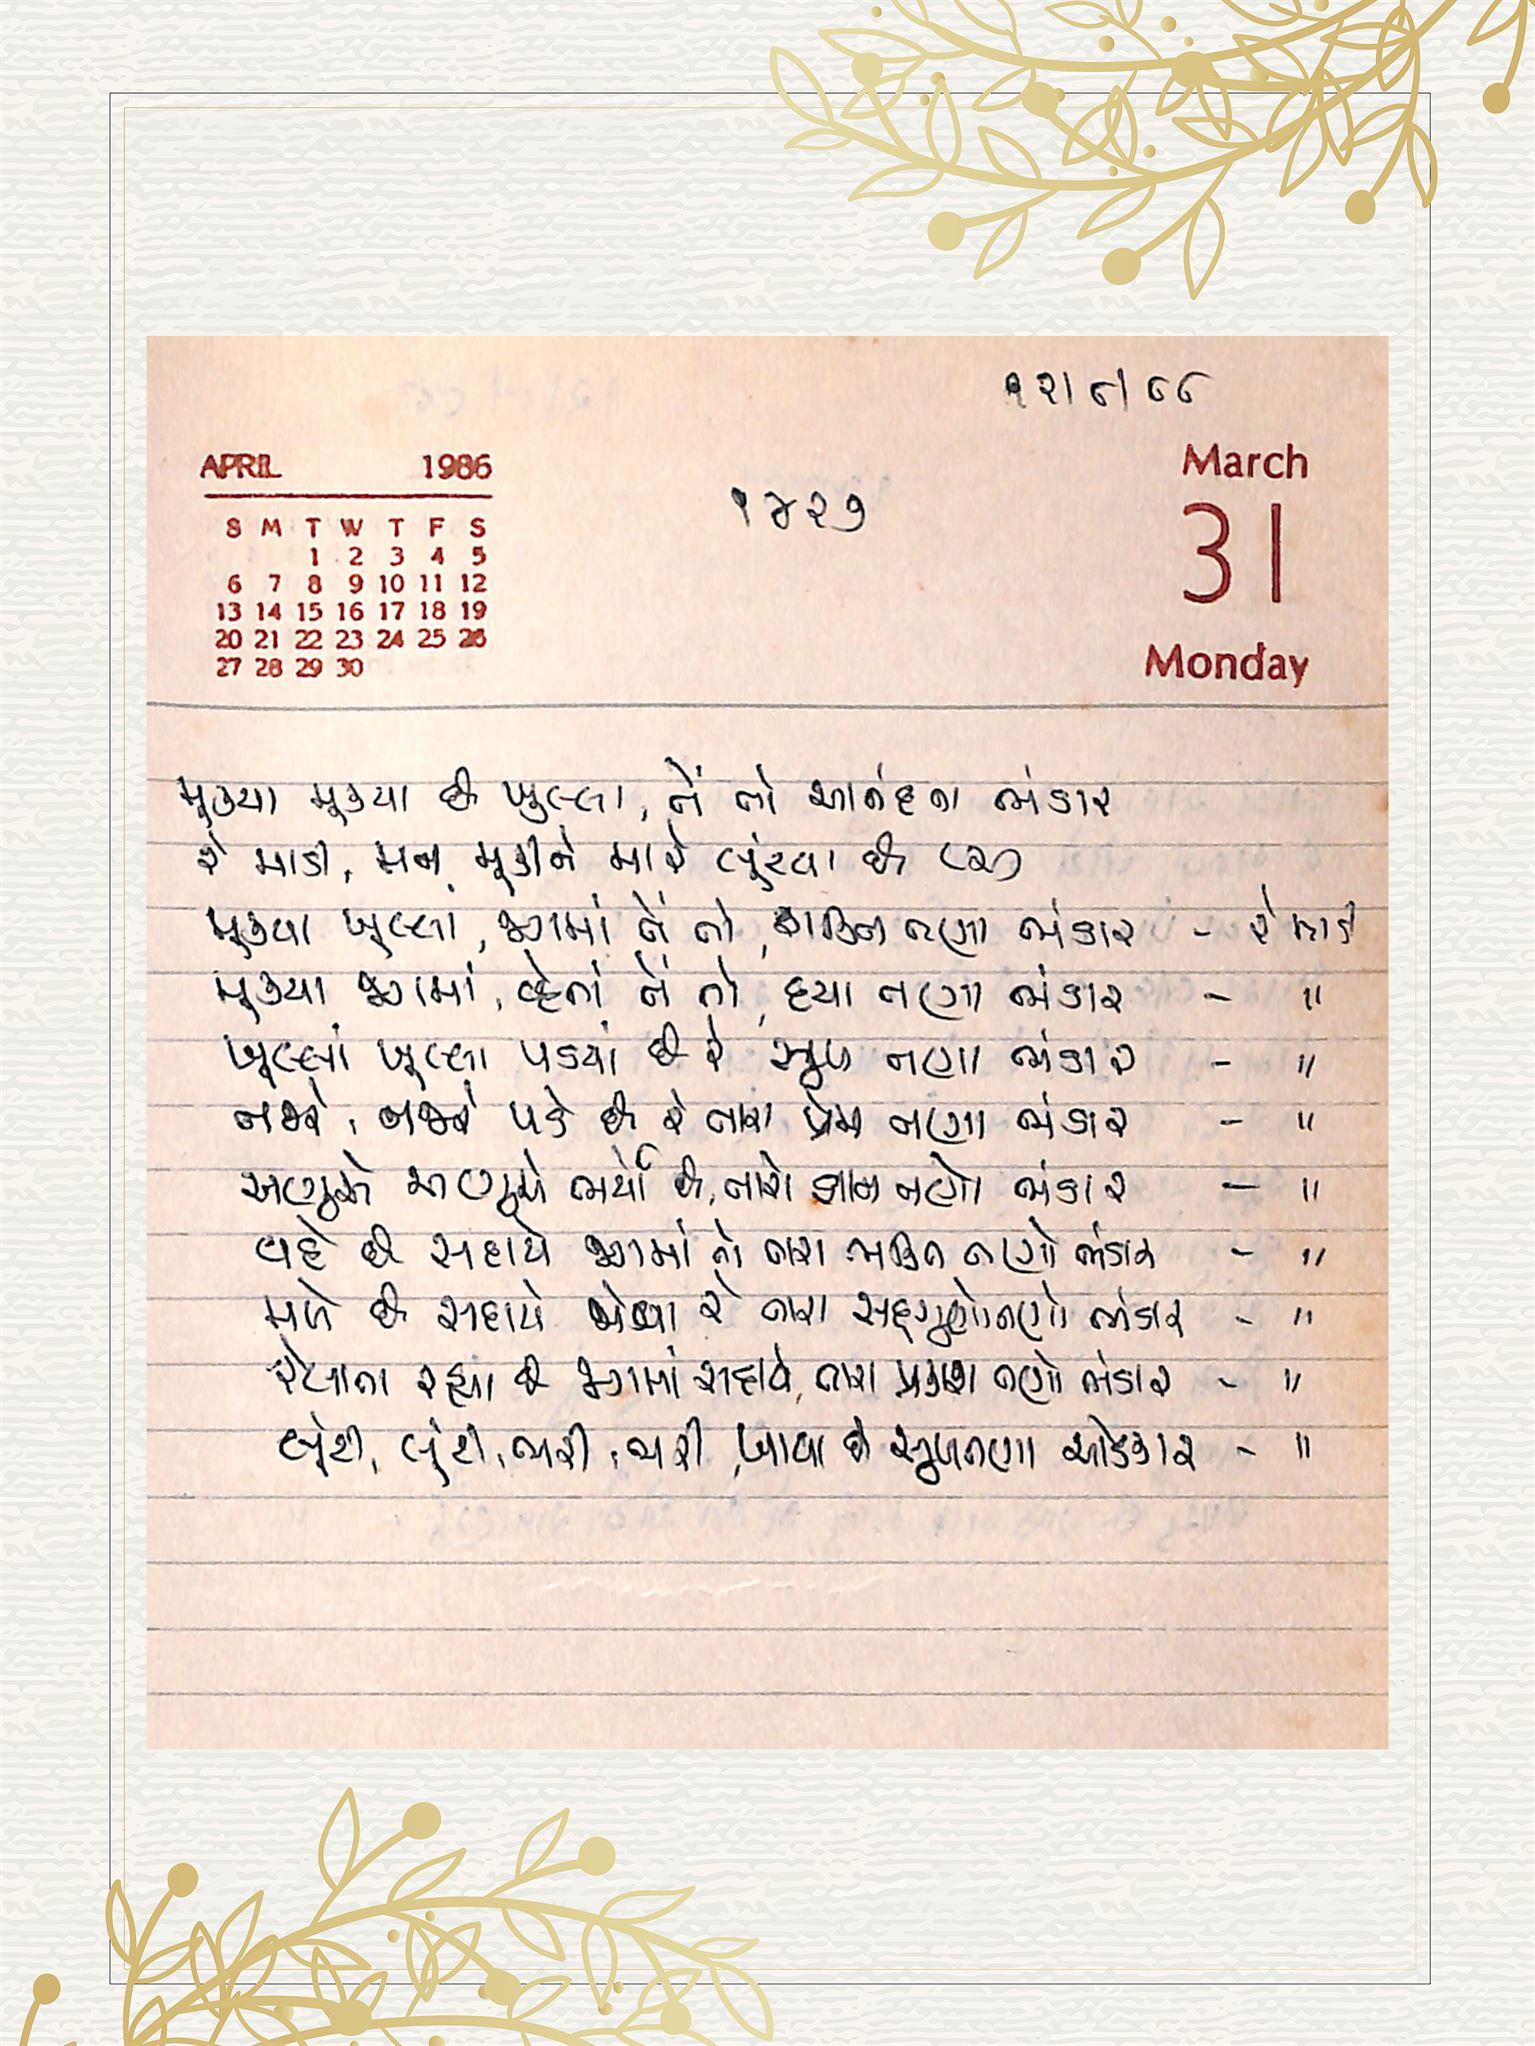 ૧૨/૮/૮૮
APRIL 1986
S M T W T F S
1 2 3 4 5
6 7 8 9 10 11 12
13 14 15 16 17 18 19
20 21 22 23 24 25 26
27 28 29 30
૧૪૨૭
March
31
Monday
મૂક્યા મૂક્યા છે ખુલ્લા, તેં તો આનંદના ભંડાર
રે માડી, મન મૂકીને મારે લૂંટવા છે (૨)
મૂક્યા ખુલ્લાં, જગમાં તેં તો, શક્તિ તણા ભંડાર - રે માડી
મૂક્યા જગમાં, વ્હેતાં તેં તો, દયા તણા ભંડાર - "
ખુલ્લાં ખુલ્લા પડયાં છે રે સુખ તણા ભંડાર - "
નજરે, નજરે પડે છે રે તારા પ્રેમ તણા ભંડાર - "
અણુએ અણુએ ભર્યો છે, તારો જ્ઞાન તણો ભંડાર - "
વહે છે સદાયે જગમાં તો તારા ભક્તિ તણો ભંડાર - "
મળે છે સદાયે એવા રે તારા સદ્દગુણોતણો ભંડાર - "
રેલાતા રહ્યા છે જગમાં સદાયે, તારા પ્રકાશ તણો ભંડાર - "
લૂંટી, લૂંટી, ભરી, ભરી, ખાવા છે સુખતણા ઓડકાર - "